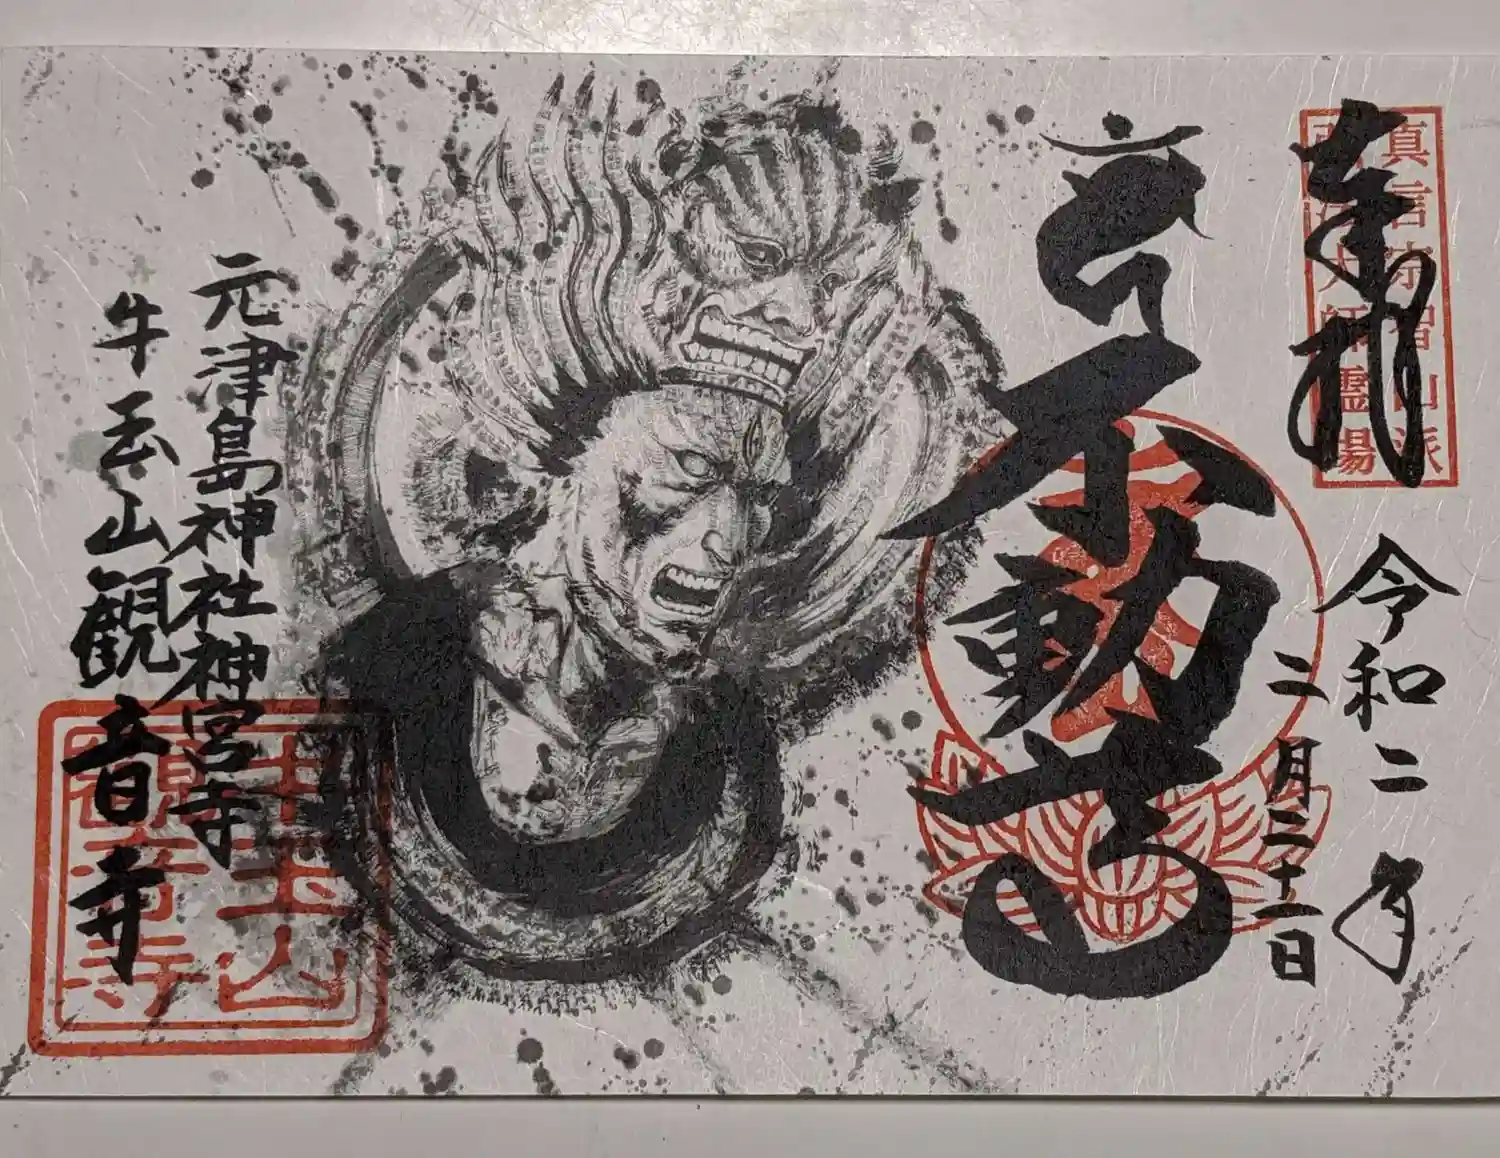 奉拝
真言宗智山派
法大師霊場
令和二年
二月二十二日
不動尊
元津島神社神宮寺
牛玉山観音寺
牛玉山
観音寺